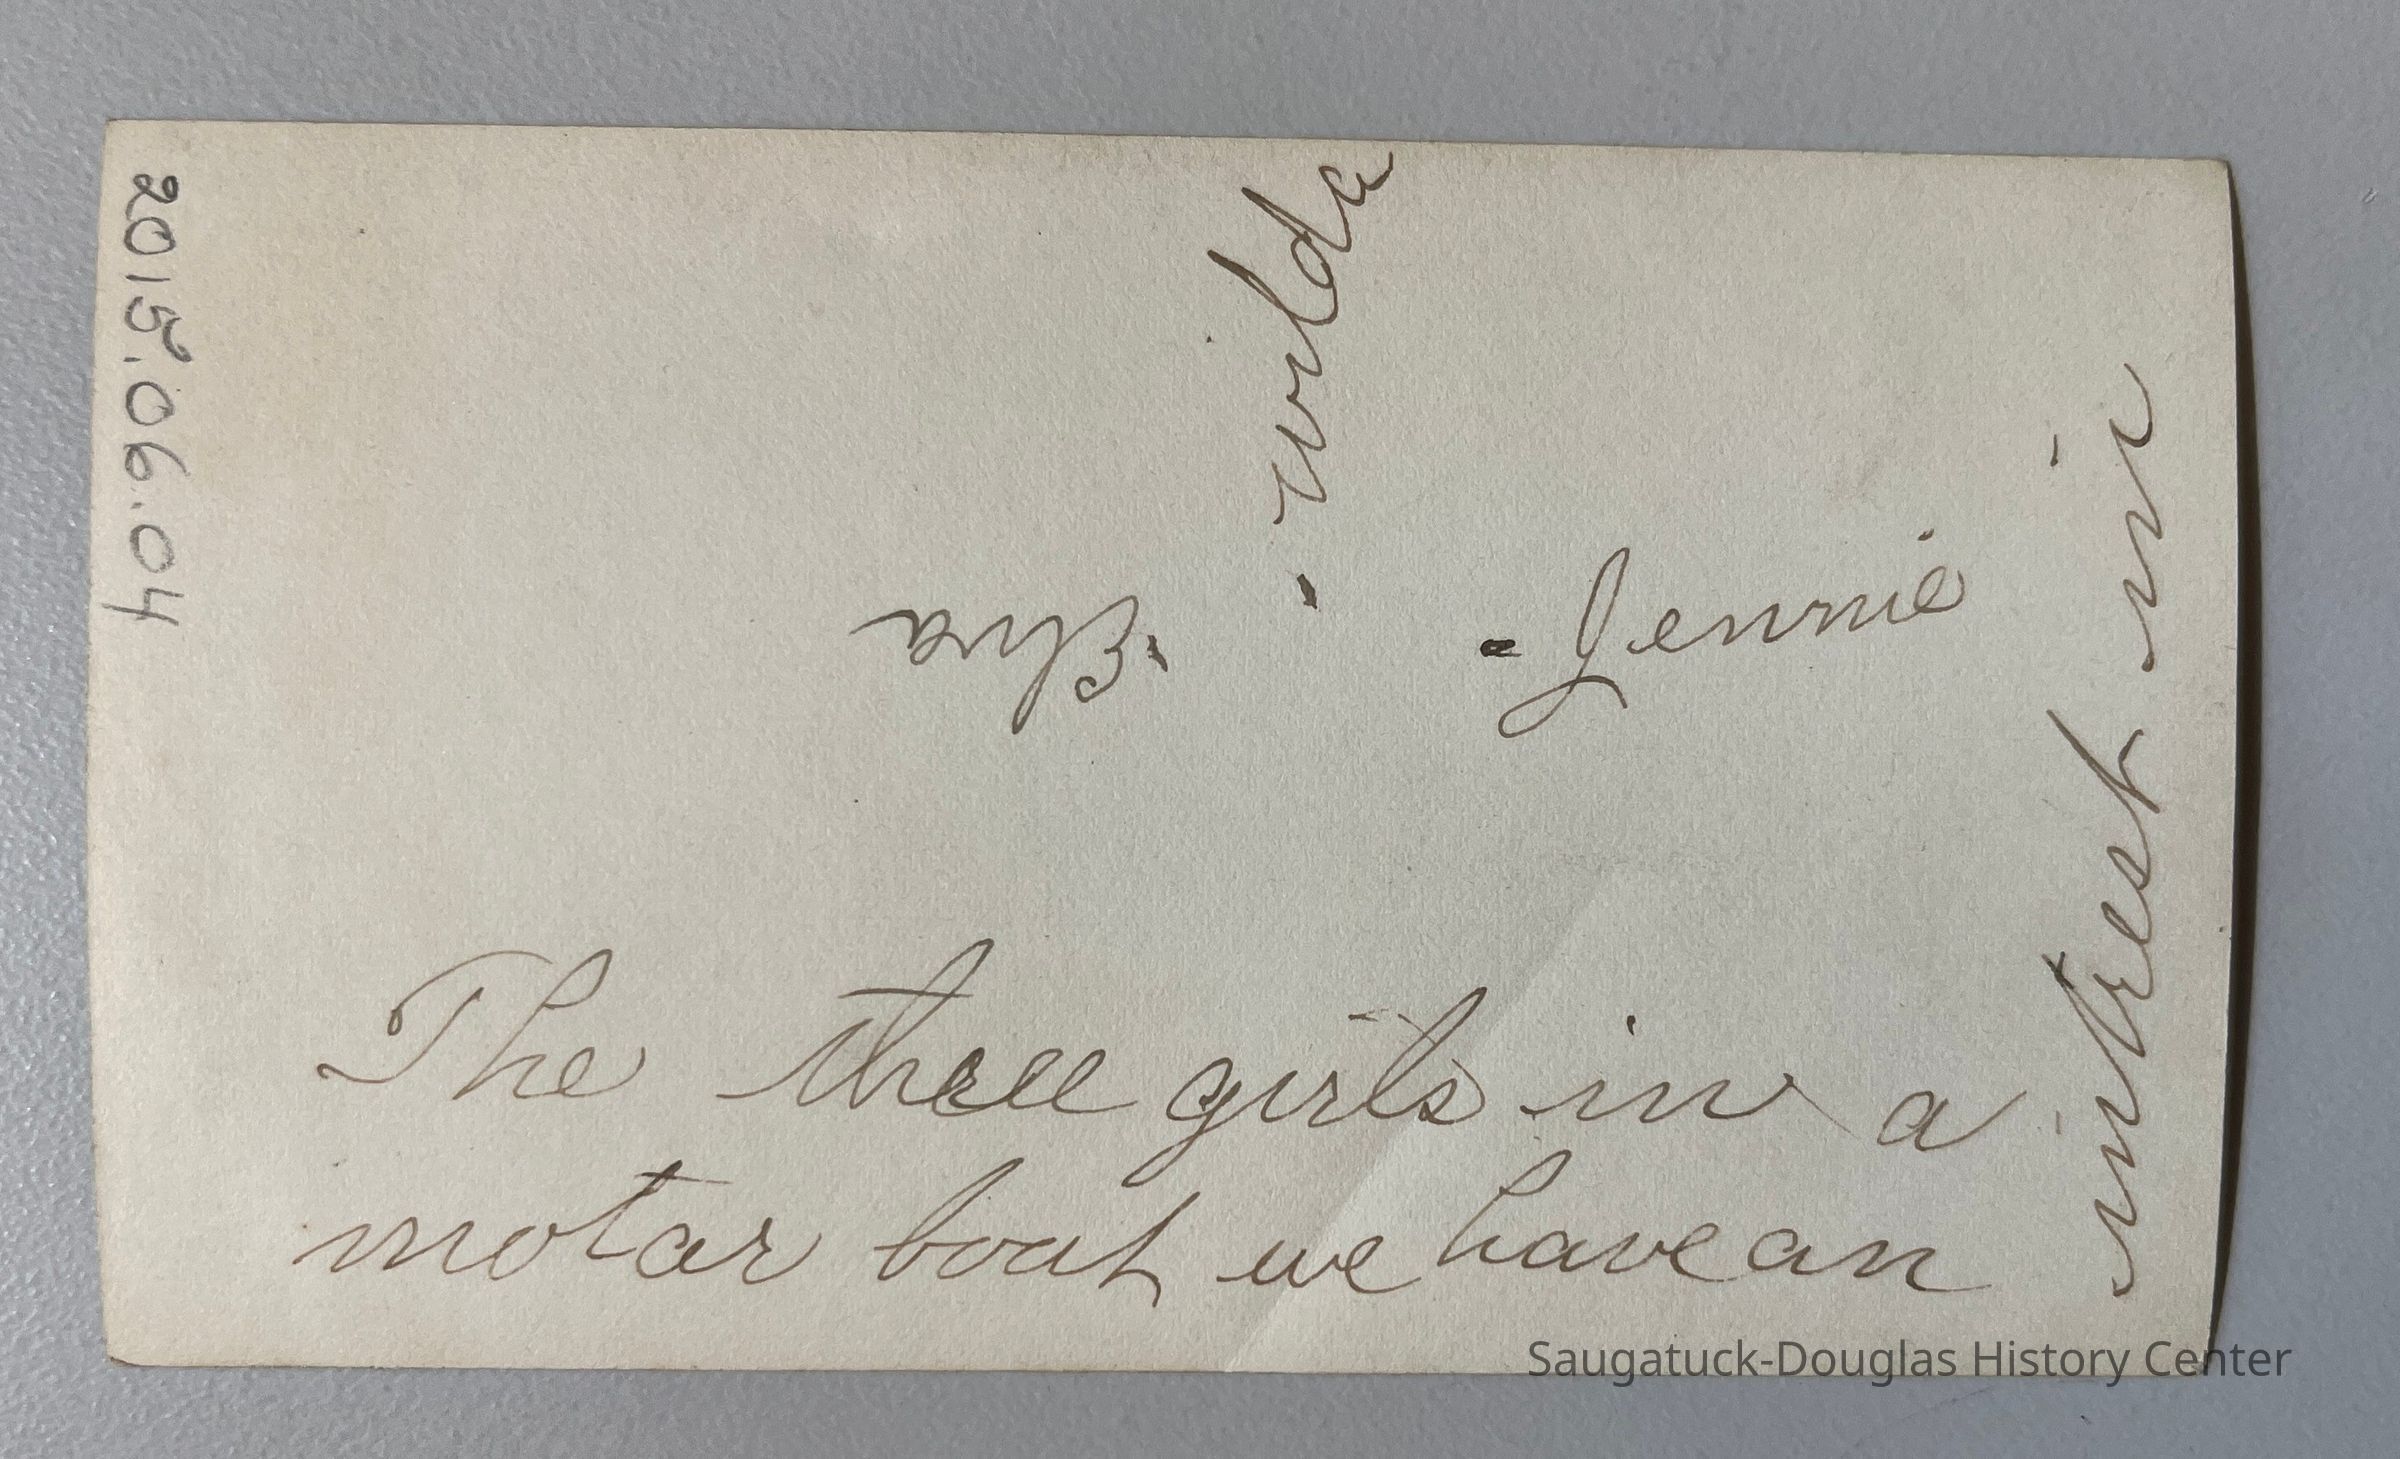 2015.06.04
wilda
Elva
Jennie
The three girls in a
motar boat we have an
intrest in
Saugatuck-Douglas History Center